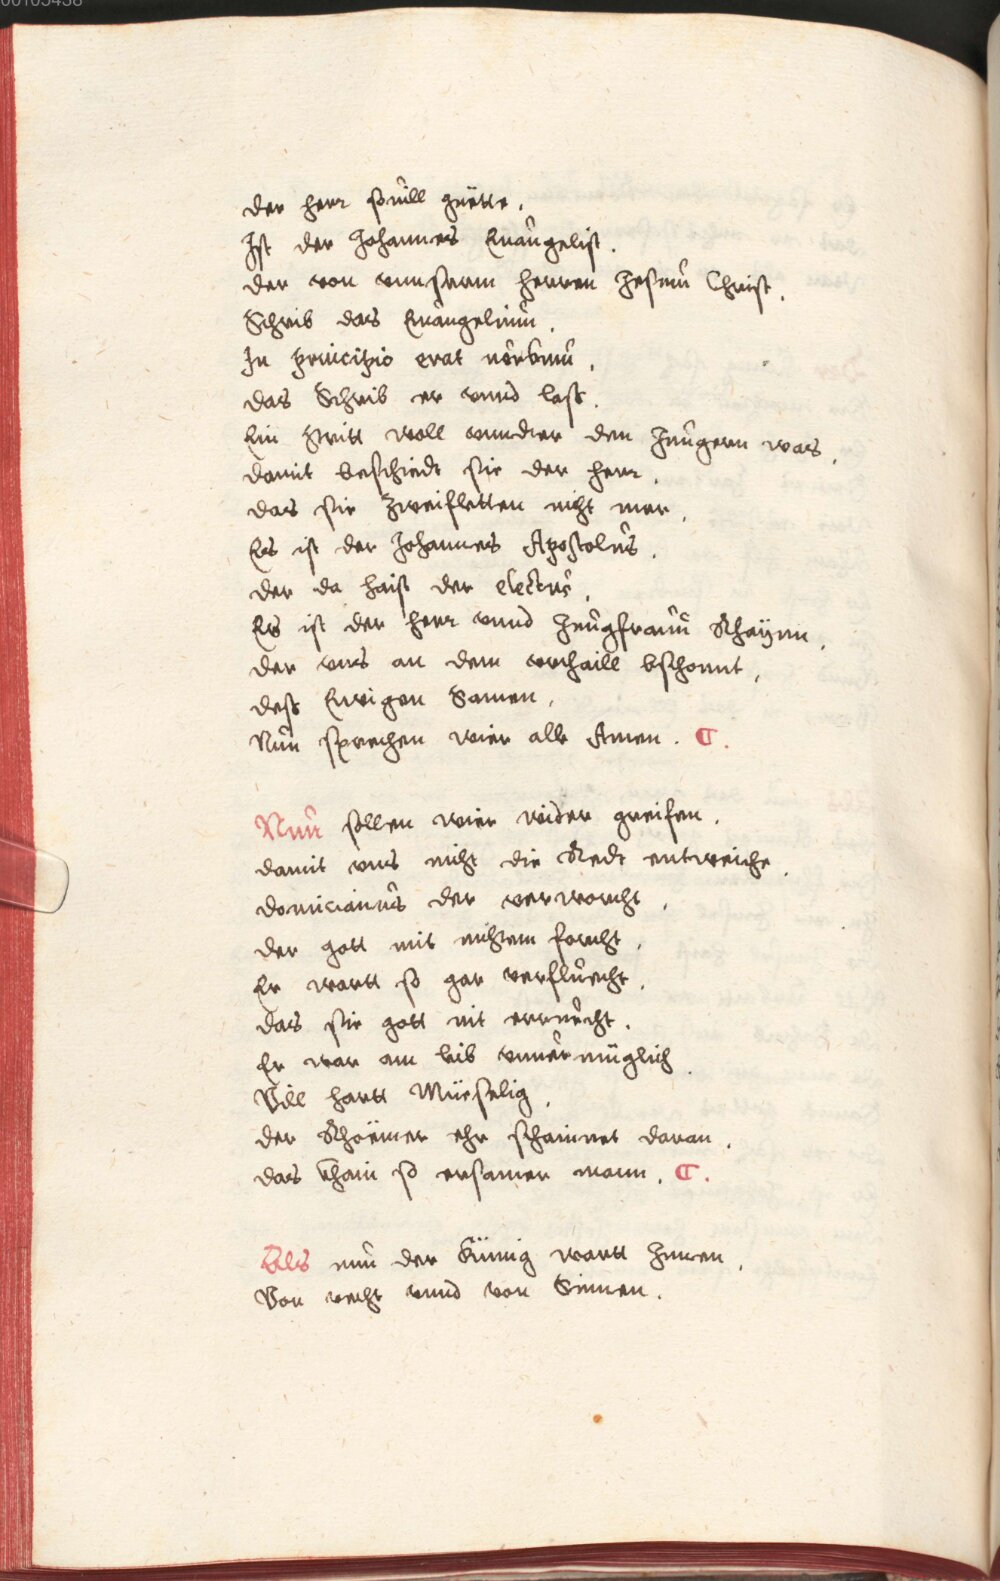 00105438
der herr souill guette.
Ist der Johannes Euangelist.
der von vnnserm herren Jesum Christ,
Schrib das Euangelium,
In principio erat verbum,
das Schrib er vnnd lass.
Ein stritt woll vnnder den Jungern was,
damit beschiedt sie der herr,
das sie Zweifletten nicht mer,
Es ist der Johannes Apostolus,
der da haist der electus,
Es ist der herr vnnd Jungfrauw Khaÿnn,
der vns an dem vrthaill bschonnt,
dess Ewigen Samen,
Nun sprechen wier alle Amen. C.
Nun sollen wier wider greifen,
damit vns nicht die Redt entweiche,
domicianus der verworcht,
der gott mit nichtem forcht,
Er wartt so gar verfluecht,
das sie gott nit errnecht.
Er war am leib vnnermüglich
Vill hartt Müeselig,
der Rhoemer ehr schainnet daran,
das kham so ersamer mann, C.
Als nun der Künig wartt Innen,
Von recht vnnd von Sinnen.